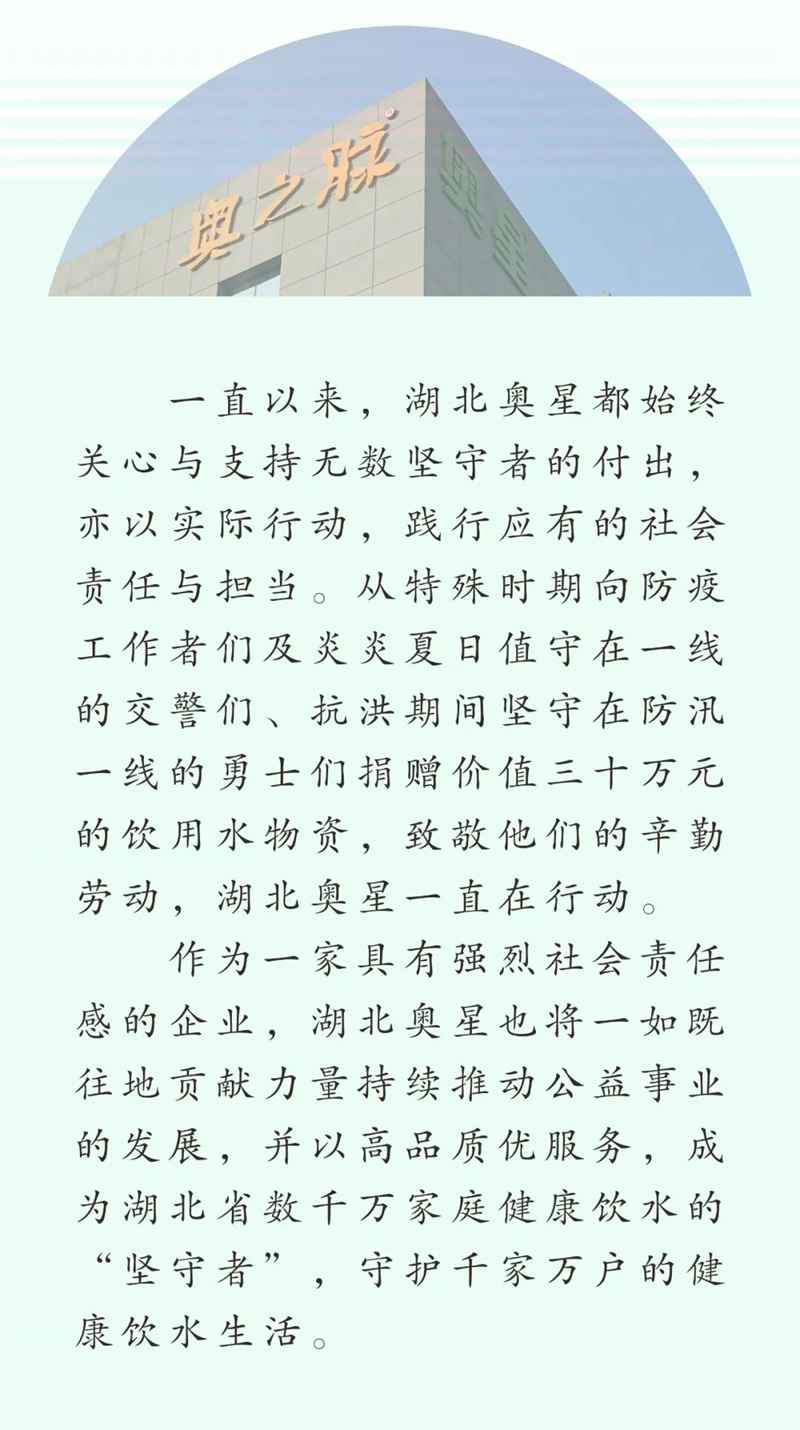 奥之脉®
奥星
一直以来，湖北奥星都始终
关心与支持无数坚守者的付出，
亦以实际行动，践行应有的社会
责任与担当。从特殊时期向防疫
工作者们及炎炎夏日值守在一线
的交警们、抗洪期间坚守在防汛
一线的勇士们捐赠价值三十万元
的饮用水物资，致敬他们的辛勤
劳动，湖北奥星一直在行动。
作为一家具有强烈社会责任
感的企业，湖北奥星也将一如既
往地贡献力量持续推动公益事业
的发展，并以高品质优服务，成
为湖北省数千万家庭健康饮水的
“坚守者”，守护千家万户的健
康饮水生活。